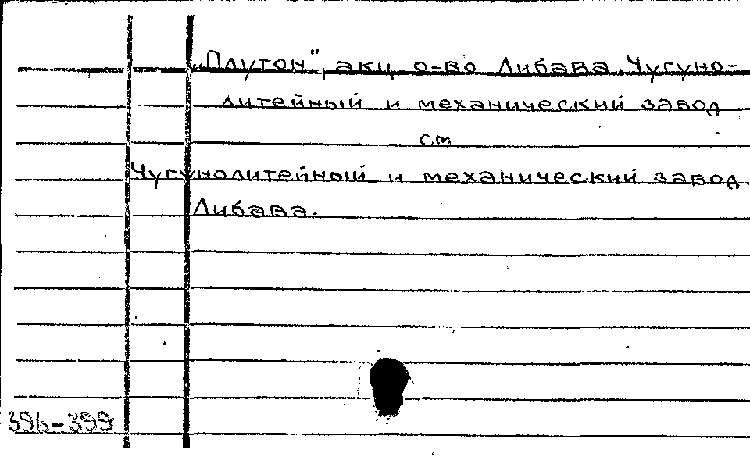 „Плутон", акц о-во Либава. Чугуно-
литейный и механический завод
см
Чугунолитейный и механический завод
Либава.
396-399